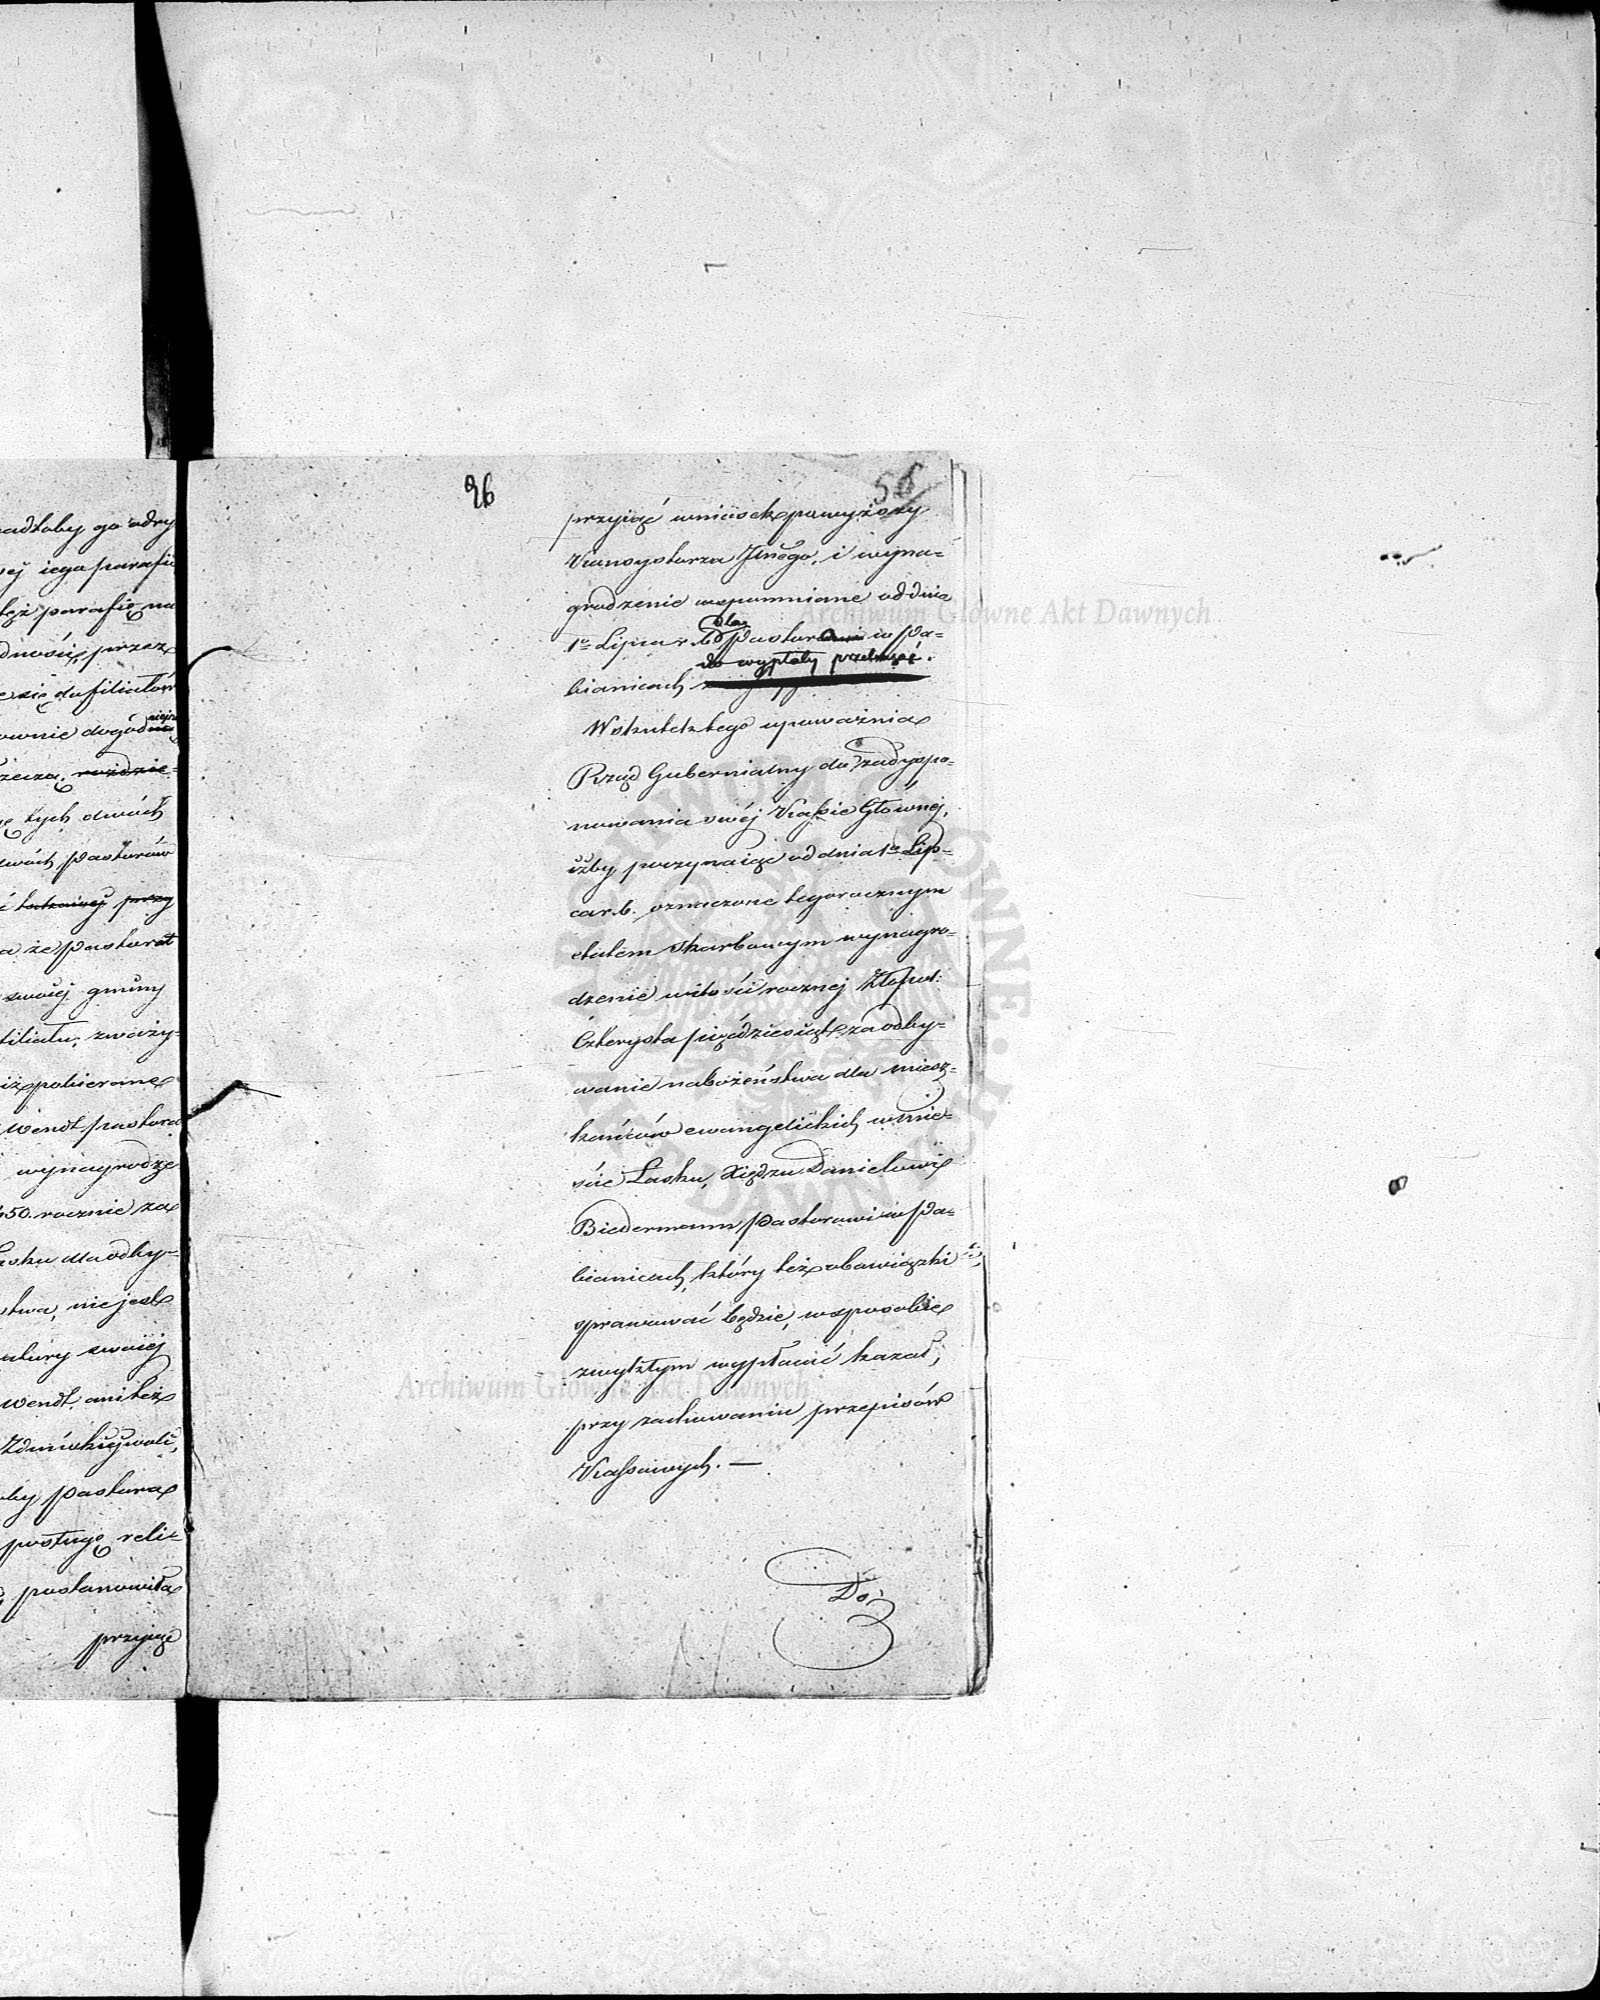 adłoby go odry
ej iego parafii
też parafię na
dności, przez
e się do filiałów
ownie dogodniejsze
rzecza, rozdzie-
ę tych dwóch
dwóch pastorów
przy
a że pastorat
swoiej gminy
filiału, zważy-
iż pobierane
Wendt pastora
wynagrodze
450. rocznie za
Łasku dla odby-
stwa, nie jest
swoiej
Wendt, ani też
Zduńskiej woli,
by pastora
posługę reli-
postanowiła
przyiąć
26
56
przyiąć wniosek powyższy
Konsystorza Jlnego, i wyna-
grodzenie wspomnione od dnia
1o Lipca r. b. dla Pastora w Pa-
bianicach do wypłaty przekazać.
W skutek tego upoważnia
Rząd Gubernialny do zadyspo-
nowania swéj Kassie Głównej,
iżby, poczynaiąc od dnia 1o Lip-
ca r. b. oznaczone tegorocznym
etatem Skarbowym wynagro-
dzenie w ilości rocznej Złpol:
Czterysta pięćdziesiąt, za odby-
wanie nabożeństwa dla miesz-
kańców ewangelickich w mie-
ście Łasku, Xiędzu Danielowi
Biedermann Pastorowi w Pa-
bianicach, który też obowiązki
sprawować będzie, w sposobie
zwykłym wypłacić kazał,
przy zachowaniu przepisów
Kassowych. —
Do
Archiwum Główne Akt Dawnych
Archiwum Główne Akt Dawnych